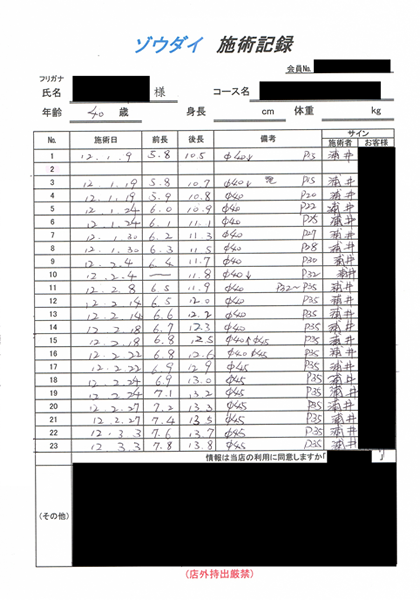 ゾウダイ 施術記録
会員No.
フリガナ
氏名 様 コース名
年齢 40 歳 身長 cm 体重 kg
No. 施術日 前長 後長 備考 サイン
施術者 お客様
1 12.1.9 5.8 10.5 φ40↓ P15 浦井
2
3 12.1.19 5.8 10.7 φ40↓ P15 浦井
4 12.1.19 5.9 10.8 φ40 P20 浦井
5 12.1.24 6.0 10.9 φ40 P22 浦井
6 12.1.24 6.1 11.1 φ40 P25 浦井
7 12.1.30 6.2 11.3 φ40 P27 浦井
8 12.1.30 6.3 11.5 φ40 P28 浦井
9 12.2.4 6.4 11.7 φ40 P30 浦井
10 12.2.4 — 11.8 φ40↓ P32 浦井
11 12.2.8 6.5 11.9 φ40 P32~P35 浦井
12 12.2.14 6.5 12.0 φ40 P35 浦井
13 12.2.14 6.6 12.2 φ40 P35 浦井
14 12.2.18 6.7 12.3 φ40 P35 浦井
15 12.2.18 6.8 12.5 φ40 φ45 P35 浦井
16 12.2.22 6.8 12.6 φ40 φ45 P35 浦井
17 12.2.22 6.9 12.9 φ45 P35 浦井
18 12.2.24 6.9 13.0 φ45 P35 浦井
19 12.2.24 7.1 13.2 φ45 P35 浦井
20 12.2.27 7.2 13.3 φ45 P35 浦井
21 12.2.27 7.4 13.5 φ45 P35 浦井
22 12.3.3 7.6 13.7 φ45 P35 浦井
23 12.3.3 7.8 13.8 φ45 P35 浦井
情報は当店の利用に同意しますか「
(その他)
(店外持出厳禁)